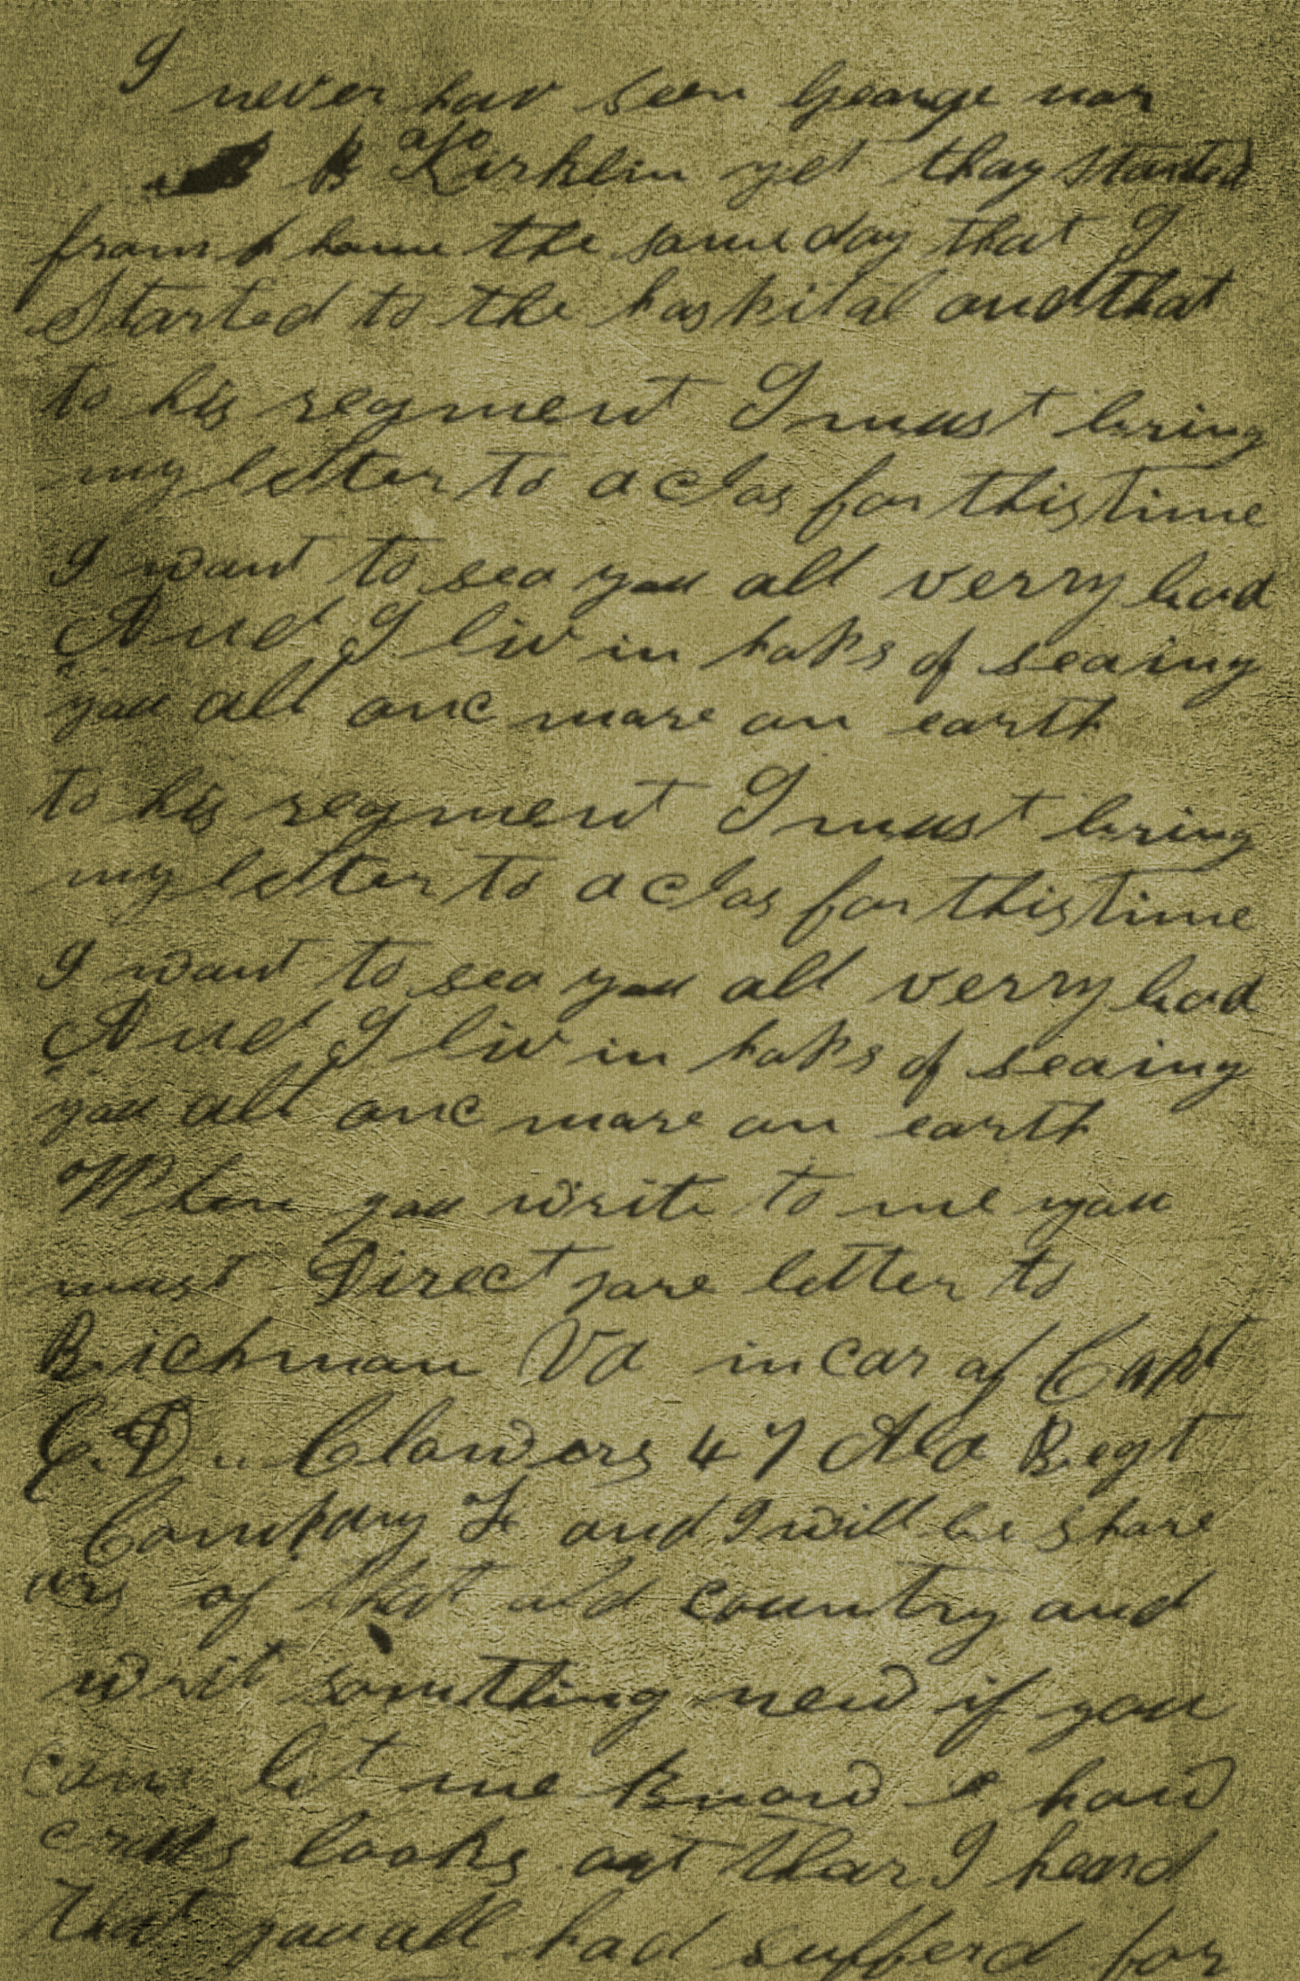 I never hav seen George nor
B Kirklin yet thay started
from home the same day that I
Started to the hospital and that
to his regment I must bring
my letter to a clos for this time
I want to sea you all verry bad
And I liv in hops of seaing
you all onc more on earth
to his regment I must bring
my letter to a clos for this time
I want to sea you all verry bad
And I liv in hops of seaing
you all onc more on earth
When you write to me you
must Direct yore letter to
Richman Va in car of Capt
C. D. Clowers 47 Ala Regt
Company and I will be
of that old country and
writ somthing new if you
can let me know how
looks out thar I heard
that you all had sufferd for